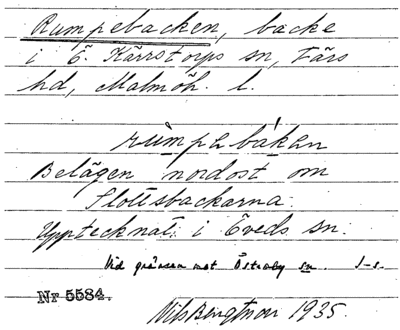 Rumpebacken, backe
i Ö. Kärrstorps sn, Färs
hd, Malmöh. l.
rumpabakan
Belägen nordost om
Slottsbackarna.
Upptecknat i Öveds sn.
Vid gränsen mot Östraby sn.
Nr 5584.
Nils Bengtsson 1935.